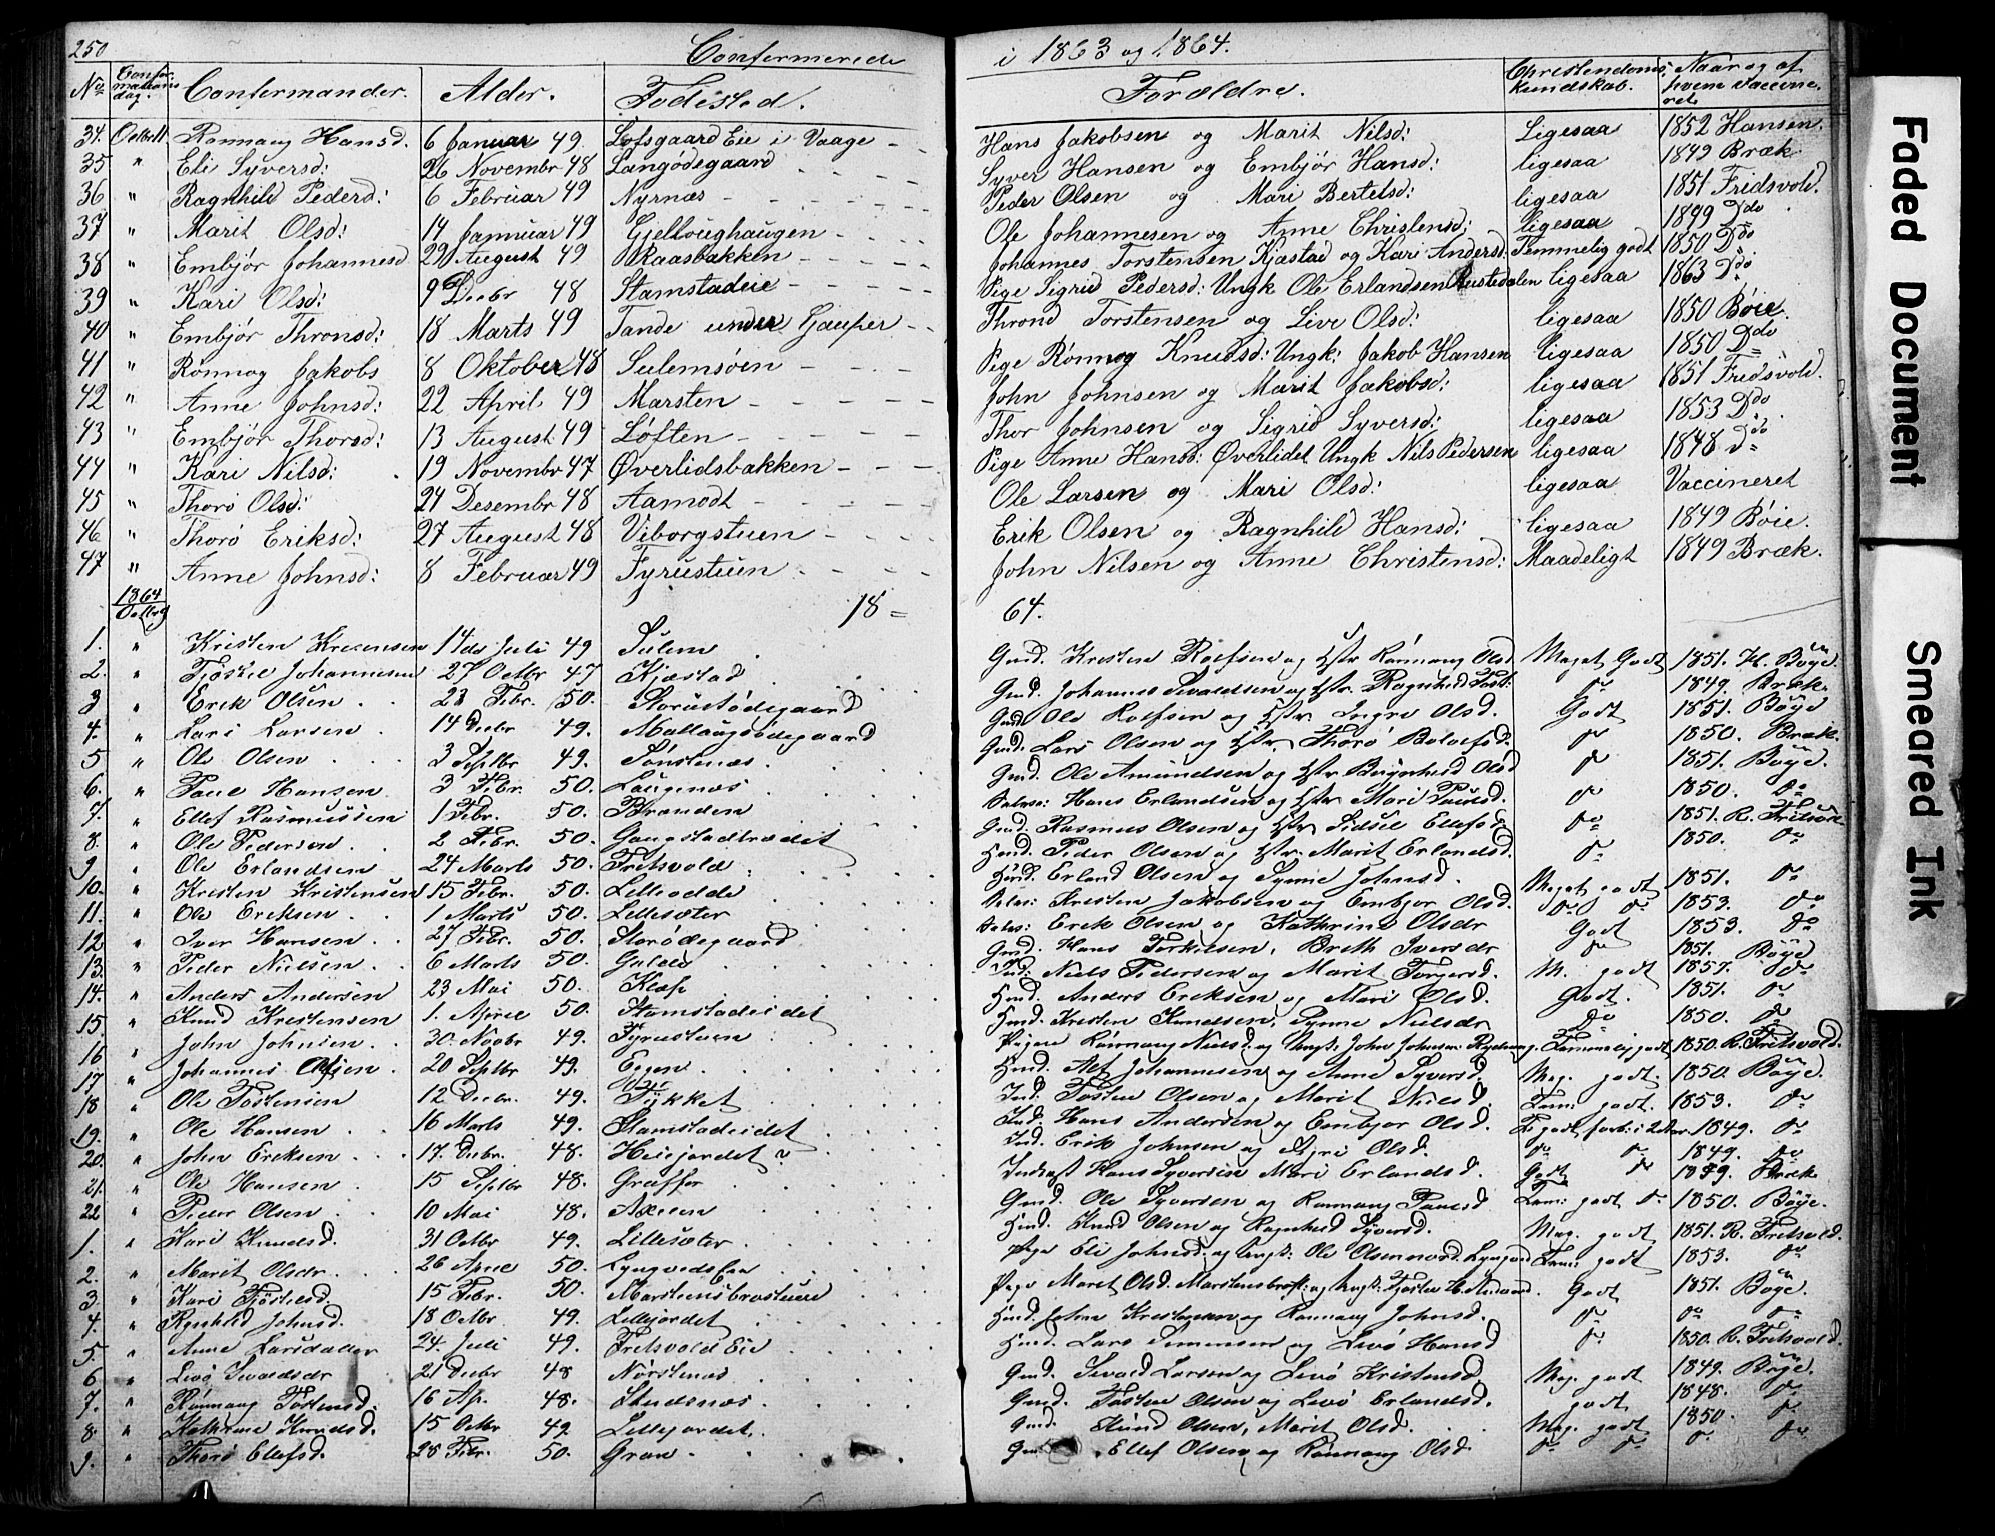 250 Confermerede i 1863 og 1864.
No Confermations dag. Confermander. Alder. Fødested. Forældre. Christendoms kundskab. Naar og af hvem vaccineret
34. Octbr 11 Rønnaug Hansd. 6 Januar 49. Lofsgaard Eie i Vaage Hans Jakobsen og Marit Nilsd: Ligesaa 1852 Hansen.
35 " Eli Syversd: 26 Novembr 48 Langødegaard Syver Hansen og Embjør Hansd: ligesaa 1849 Bræk.
36 " Ragnhild Pederd: 6 Februar 49 Nyrnæs Peder Olsen og Mari Bertelsd: ligesaa 1851 Fridsvold.
37 " Marit Olsd: 14 Januar 49 Gjelloughaugen Ole Johannesen og Anne Christensd; ligesaa 1849 Ddo
38 " Embjør Johannesd 29 August 49 Raasbakken Johannes Torstensen Kjæstad og Kari Andersd: Temmelig godt 1850 Ddo
39 " Kari Olsd: 9 Decbr 48 Stamstadeie Pige Sigrid Pedersd: Ungk Ole Erlandsen Austedalen ligesaa 1863 Ddo
40 " Embjør Thronsd: 18 Marts 49 Tande under Gauper Thrond Torstensen og Live Olsd: ligesaa 1850 Bøie.
41 " Rønnog Jakobs 8 Oktober 48 Sulemsøien Pige Rønnog Knudsd: Ungk: Jakob Hansen ligesaa 1850 Ddo
42 " Anne Johnsd: 22 April 49 Marsten John Johnsen og Marit Jakobsd: ligesaa 1851 Fridsvold.
43 " Embjør Thorsd: 13 August 49 Løften Thor Johnsen og Sigrid Syversd: ligesaa 1853 Ddo
44 " Kari Nilsd: 19 Novembr 47 Øverlidsbakken Pige Anne Hansd: Øverlidet Ungk Nils Pedersen ligesaa 1848 Do
45 " Thorø Olsd: 24 Desembr 48 Aamodt Ole Larsen og Mari Olsd: ligesaa Vaccineret
46 " Thorø Eriksd: 27 August 48 Viborgstuen Erik Olsen og Ragnhild Hansd: ligesaa 1849 Bøie.
47 " Anne Johnsd: 8 Februar 49 Tyrustuen John Nilsen og Anne Christensd: Maadeligt 1849 Bræk.
1864 Octbr 9 18= 64.
1. " Kristen Kristensen 14de Juli 49 Sulem Gmd. Kristen Rolfsen og Hstr Rønnaug Olsd Meget Godt 1851. H. Bøye.
2. " Tjøstel Johannesen 27 Octbr 47 Kjæstad Gmd. Johannes Sevaldsen og Hstr. Ragnhild Tost: do 1849. Bræk.
3 " Erik Olsen 23 Febr. 50. Storustødegaard Gmd Ole Rolfsen og Hstr. Ingri Olsd. Godt 1851. Bøye
4. " Lars Larsen 14 Decbr 49. Mallaugsødegaard Gmd. Lars Olsen og Hstr. Thorø do 1850. Bræk.
5 " Ole Olsen 3 Septbr 49. Sønstenæs Gmd. Ole Amundsen og Hstr Ragnhild Olsd do 1851. Bøye.
6. " Paul Hansen 3 Febr. 50. Laugenæs Selve: Hans Erlandsen og Hstr Mari Paulsd. do 1850. do
7. " Ellef Rasmussen 1 Febr. 50. Branden Gmd. Rasmus Olsen og Hstr Sidsel Ellefsd do 1851. R. Fritsvold
8. " Ole Pedersen 2 Febr. 50. Gaupstadbrædet Hmd. Peder Olsen og Hstr. Marit Erlandsd. do 1850. do
9 " Ole Erlandsen 24 Marts 50. Fretsvold Hmd. Erland Olsen og Synne Johnsd. Meget godt 1851. do
10. " Kristen Kristensen 15 Febr. 50. Lilleødde Selve: Kristen Jakobsen og Embjør Olsd. do do 1853. do
11. " Ole Eriksen 1 Marts 50. Lillesæter Selve: Erik Olsen og Kathrine Olsdr Godt 1853. do
12 " Iver Hansen 27 Febr. 50. Storødegaard Gmd. Hans Torkilsen, Breth Iversdr do 1851. Bøye
13. " Peder Nielsen 6 Marts 50. Ind. Niels Pedersen og Marit Torgersd. M. godt 1857. do
14. " Anders Andersen 23 Mai 50. Klef Hmd. Anders Eriksen og Mari Olsd. Godt. 1851. do
15. " Knud Kristensen 1. April 50. Stamstadeidet Hmd. Kristen Knudsen, Synne Nielsdr Do 1850. do
16 " John Johnsen 30. Novbr 49. Tyrustuen Pigen Rønnaug Nielsd. og Ungk: John Johnsen Temmelig godt 1850. R. Fritsvold.
17 " Johannes Alfsen 20 Septbr 49. Eggen Hmd. Alf Johannesen og Anne Syversd. Meg. godt. 1850. Bøye.
18 " Ole Tostensen 12 Decbr. 49. Tykket Ind. Tosten Olsen og Marit Nielsd Tem: godt. 1853. do
19. " Ole Hansen 16 Marts 49. Stamstadeidet Ind. Hans Andersen og Embjør Olsd. 1849. do
20. " John Eriksen 17. Decbr. 48. Heiejordet Ind. Erik Johnsen og Syri Olsd. do do 1849. do
21. " Ole Hansen 15 Septbr 48. Graffer Indkost Hans Syversen Mari Erlandsd. Godt do 1849. Bræk
22 " Peder Olsen 10 Mai 48. Gmd. Ole Syversen og Rønnaug Paulsd Tem: godt do 1850. Bøye.
1. " Kari Knudsd. 31 Octbr 49. Lillesæter Hmd. Knud Olsen og Ragnhild Syversd. Meg. godt 1851. R. Fritsvold.
2. " Marit Olsdr. 26 April 50. Lyngvedslien Pige Eli Johnsd. og Ungk: Ole Olsen Tem: godt 1853. do
3. " Kari Tjøstelsd 15 Febr. 50. Marstensbrøstuen Pige Marit Olsd. og Ungk: Godt 1851. Bøye.
4. " Ragnhild Johnsd. 18 Octbr 49. Lillejordet Hmd. John Kristensen og Rønnaug Johnsd. do do do
5. " Anne Larsdatter 24. Juli 49. Fretsvold Eie Hmd. Lars Simensen og Livø Hansd do 1850. R. Fritsvold
6 " Livø Sevaldsdr 21 Decbr 48 Nørstenæs Gmd. Sevald Larsen og Livø Kristensd. Meg. godt 1849. Bøye
7. " Rønnaug Tostensd. 16 Ap. 48. Studsnæs Gmd. Tosten Olsen og Livø Erlandsd. godt 1848. do
8. " Kathrine Knudsd. 15 Octbr 49. Lillejordet. Gmd. Knud Olsen, Marit Olsd. Meg. godt 1850. do
9. " Thorø Ellefsd. 28 Febr. 50. Gran Gmd. Ellef Olsen og Rønnaug Olsd. do do do do
Faded Document
Smeared Ink